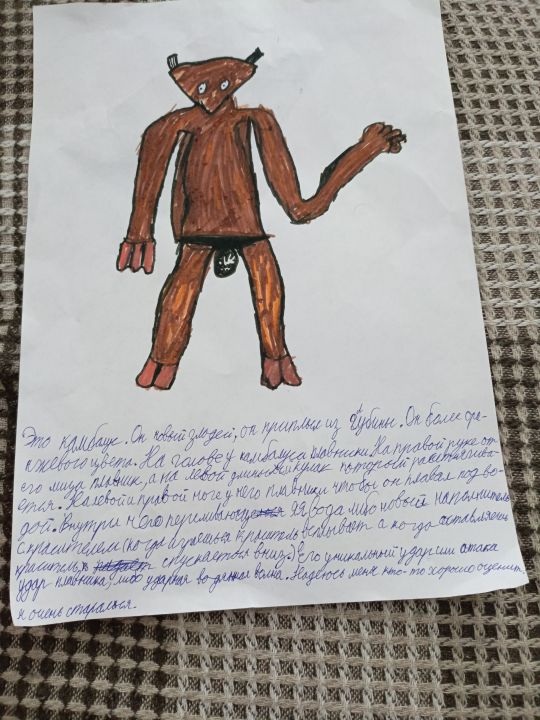 Это камбалус. Он новый злодей, он приплыл из глубины. Он более
нжевого цвета. На голове у камбалуса плавники. На правой руке от
его лица плавник, а на левой длинный кулак который растягива-
ется. На левой и правой ноге у него плавники чтобы он плавал под во-
дой. Внутри него переливающ вода либо новый наполнитель
с красителем (когда играешься краситель всплывает а когда оставляешь
краситель спускается вниз). Его уникальный удар или атака
удар плавника, либо ударная водяная волна. Надеюсь меня кто-то хорошо оценит
я очень старался.